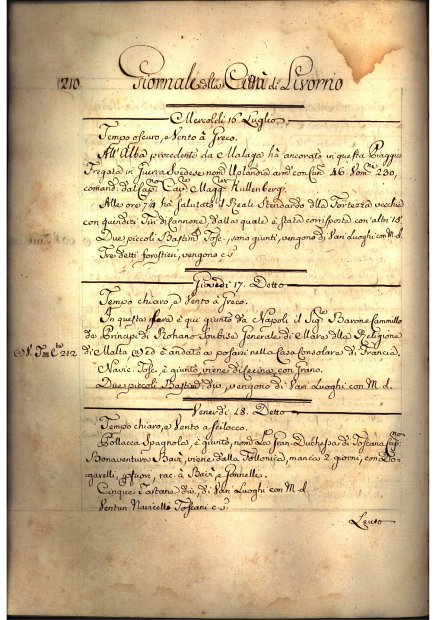 210 Giornale della Città di Livorno
Mercoldì 16 Luglio
Tempo oscuro, e Vento à Greco.
All'Alba procedente da Malaga hà ancorato in questa Piaggia
Fregata in Guerra Svedese nom.ᵗᵃ Uplandia arm. con Can. 46. Vom.ⁿⁱ 230,
comand. dal Cap.ⁿ Cav.ʳ Magg.ʳ Kullenberg.
Alle ore 74 hà salutato il Reale Stendardo della Fortezza vecchia
con quindici Tiri di Cannone, dalla quale è stata corrisposta con altri 15.
Due piccoli Bastim.ᵗⁱ Tosc., sono giunti, vengono di Varj Luoghi con M. d.
Tre detti forestieri, vengono c.s.
Giovedì 17. Detto
Tempo chiaro, e Vento à Greco.
In questa sera è quì giunto da Napoli il Sig.ʳ Barone Cammillo
de Principi di Rohano Soubise Generale di Mare della Religione
V. 212
di Malta, ed è andato a posarsi nella Casa Consolare di Francia.
Navic. Tosc. è giunto, viene di Cecina, con Grano.
Due piccoli Bastim.ᵗⁱ d.ⁱ, vengono di Varj Luoghi con M. d.
Venerdì 18. Detto
Tempo chiaro, e Vento a Scilocco.
Pollacca Spagnola è giunta, nom.ᵗᵃ La Gran Duchessa di Toscana, Cap.ⁿᵒ
Bonaventura Bair, viene della Tollonica, manca 2 giorni, con Do-
garelli, fuori, rac. à Bair e Gonnelle.
Cinque Tartane d.ᵉ, di Varj Luoghi con M. d.
Ventun Navicello Toscani c.s.
Leuto